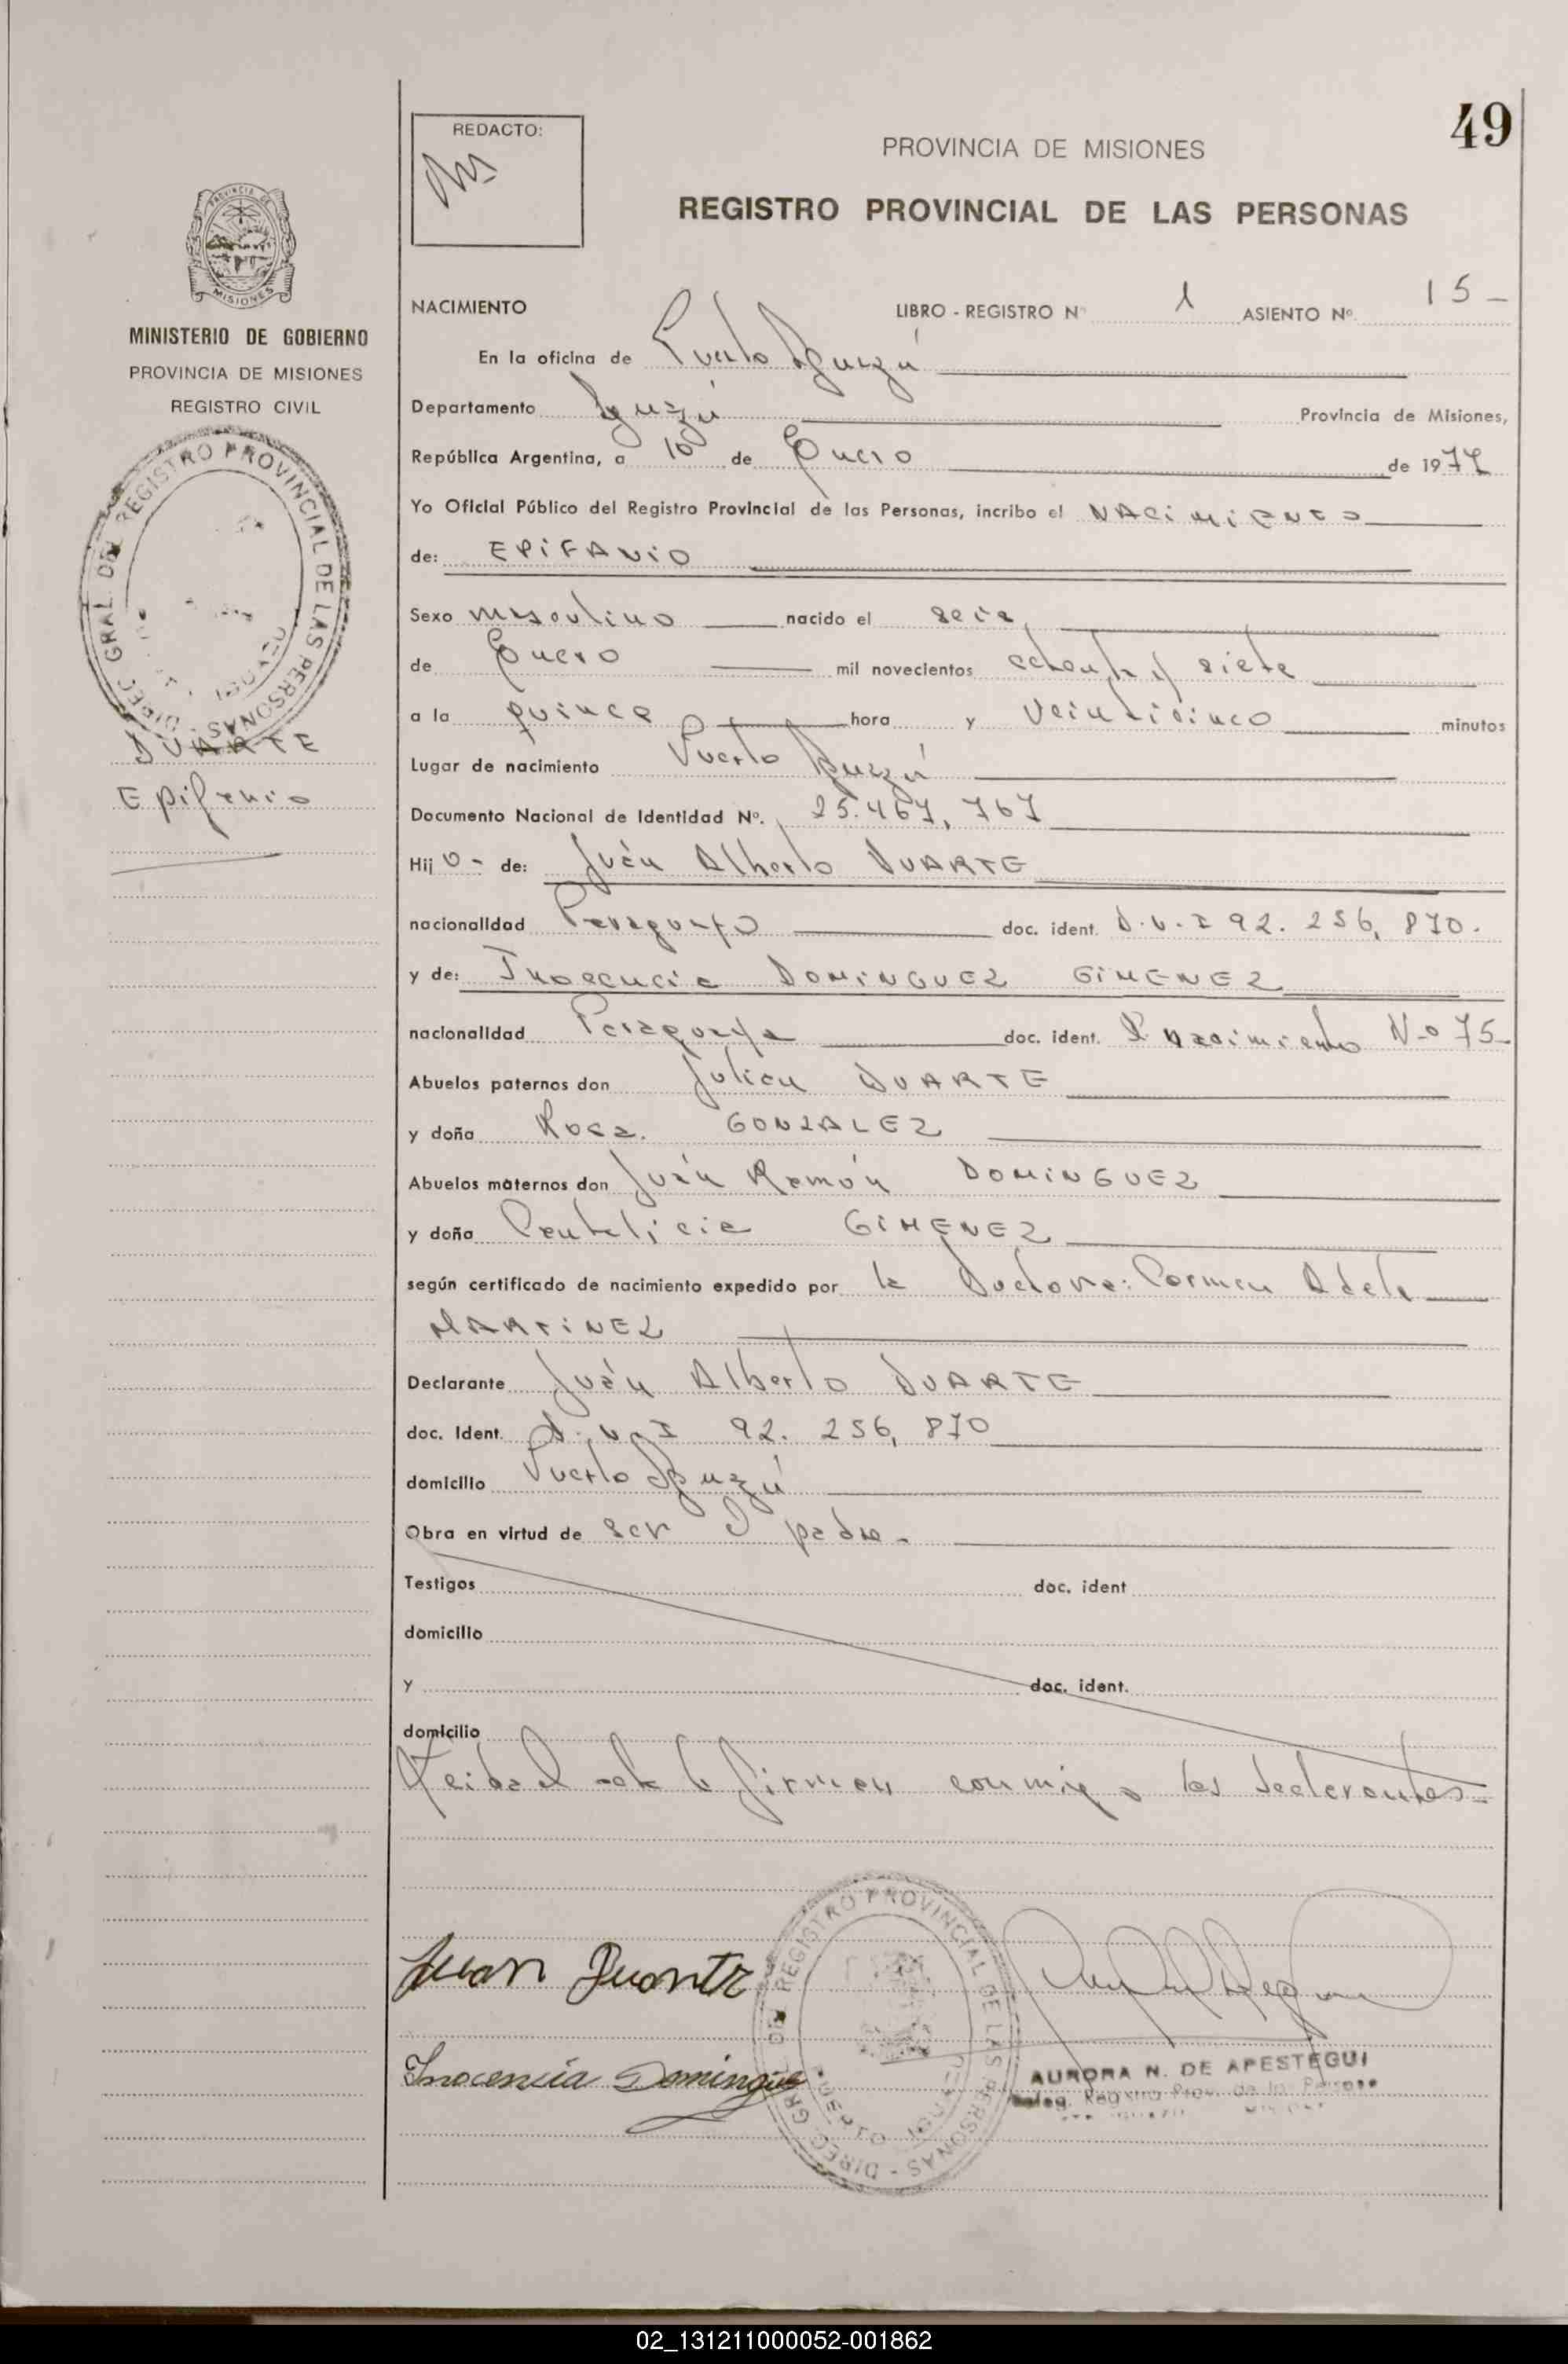 49
REDACTO:
PROVINCIA DE MISIONES
REGISTRO PROVINCIAL DE LAS PERSONAS
MISIONES
MINISTERIO DE GOBIERNO
PROVINCIA DE MISIONES
REGISTRO CIVIL
DIREC. GRAL. DEL REGISTRO PROVINCIAL DE LAS PERSONAS
DUARTE
Epifanio
NACIMIENTO LIBRO - REGISTRO Nº 1 ASIENTO Nº 15 -
En la oficina de Puerto Iguazú
Departamento Iguazú Provincia de Misiones,
República Argentina, a 10 de Enero de 1977
Yo Oficial Público del Registro Provincial de las Personas, incribo el NACIMIENTO
de: EPIFANIO
Sexo masculino nacido el seis
de Enero mil novecientos setenta y siete
a la quince hora y veinticinco minutos
Lugar de nacimiento Puerto Iguazú
Documento Nacional de Identidad Nº. 25.467,767
Hij o - de: Juán Alberto DUARTE
nacionalidad Paraguayo doc. ident. D.N.I 92.256,870.
y de: Inocencia DOMINGUEZ GIMENEZ
nacionalidad Paraguaya doc. ident. P. nacimiento Nº 75-
Abuelos paternos don Julian DUARTE
y doña Rosa. GONZALEZ
Abuelos maternos don Juán Ramón DOMINGUEZ
y doña GIMENEZ
según certificado de nacimiento expedido por la Doctora: Carmen Adela
MARTINEZ
Declarante Juán Alberto DUARTE
doc. Ident. D.N.I 92.256,870
domicilio Puerto Iguazú
Obra en virtud de ser el padre.
Testigos doc. ident
domicilio
y doc. ident.
domicilio
Leida el acta la firman conmigo los declarantes=
Juan Duarte
Inocencia Domingue
DIREC. GRAL. DEL REGISTRO PROVINCIAL DE LAS PERSONAS
AURORA N. DE APESTEGUI
Deleg. Registro Prov. de las Personas
02_131211000052-001862